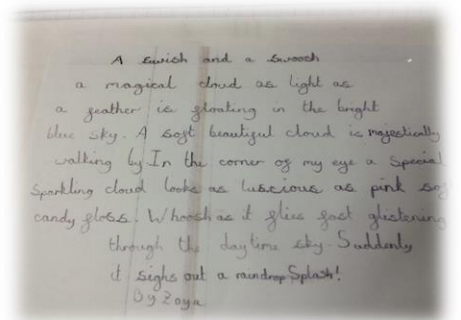 A swish and a swoosh
a magical cloud as light as
a feather is floating in the bright
blue sky. A soft beautiful cloud is majestically
walking by In the corner of my eye a special
sparkling cloud looks as luscious as pink so
candy floss. Whoosh as it flies fast glistening
through the daytime sky. Suddenly
it sighs out a raindrop Splash!
By Zoya